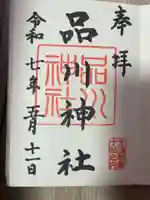 奉拝
品川神社
品川神社
令和七年五月十一日